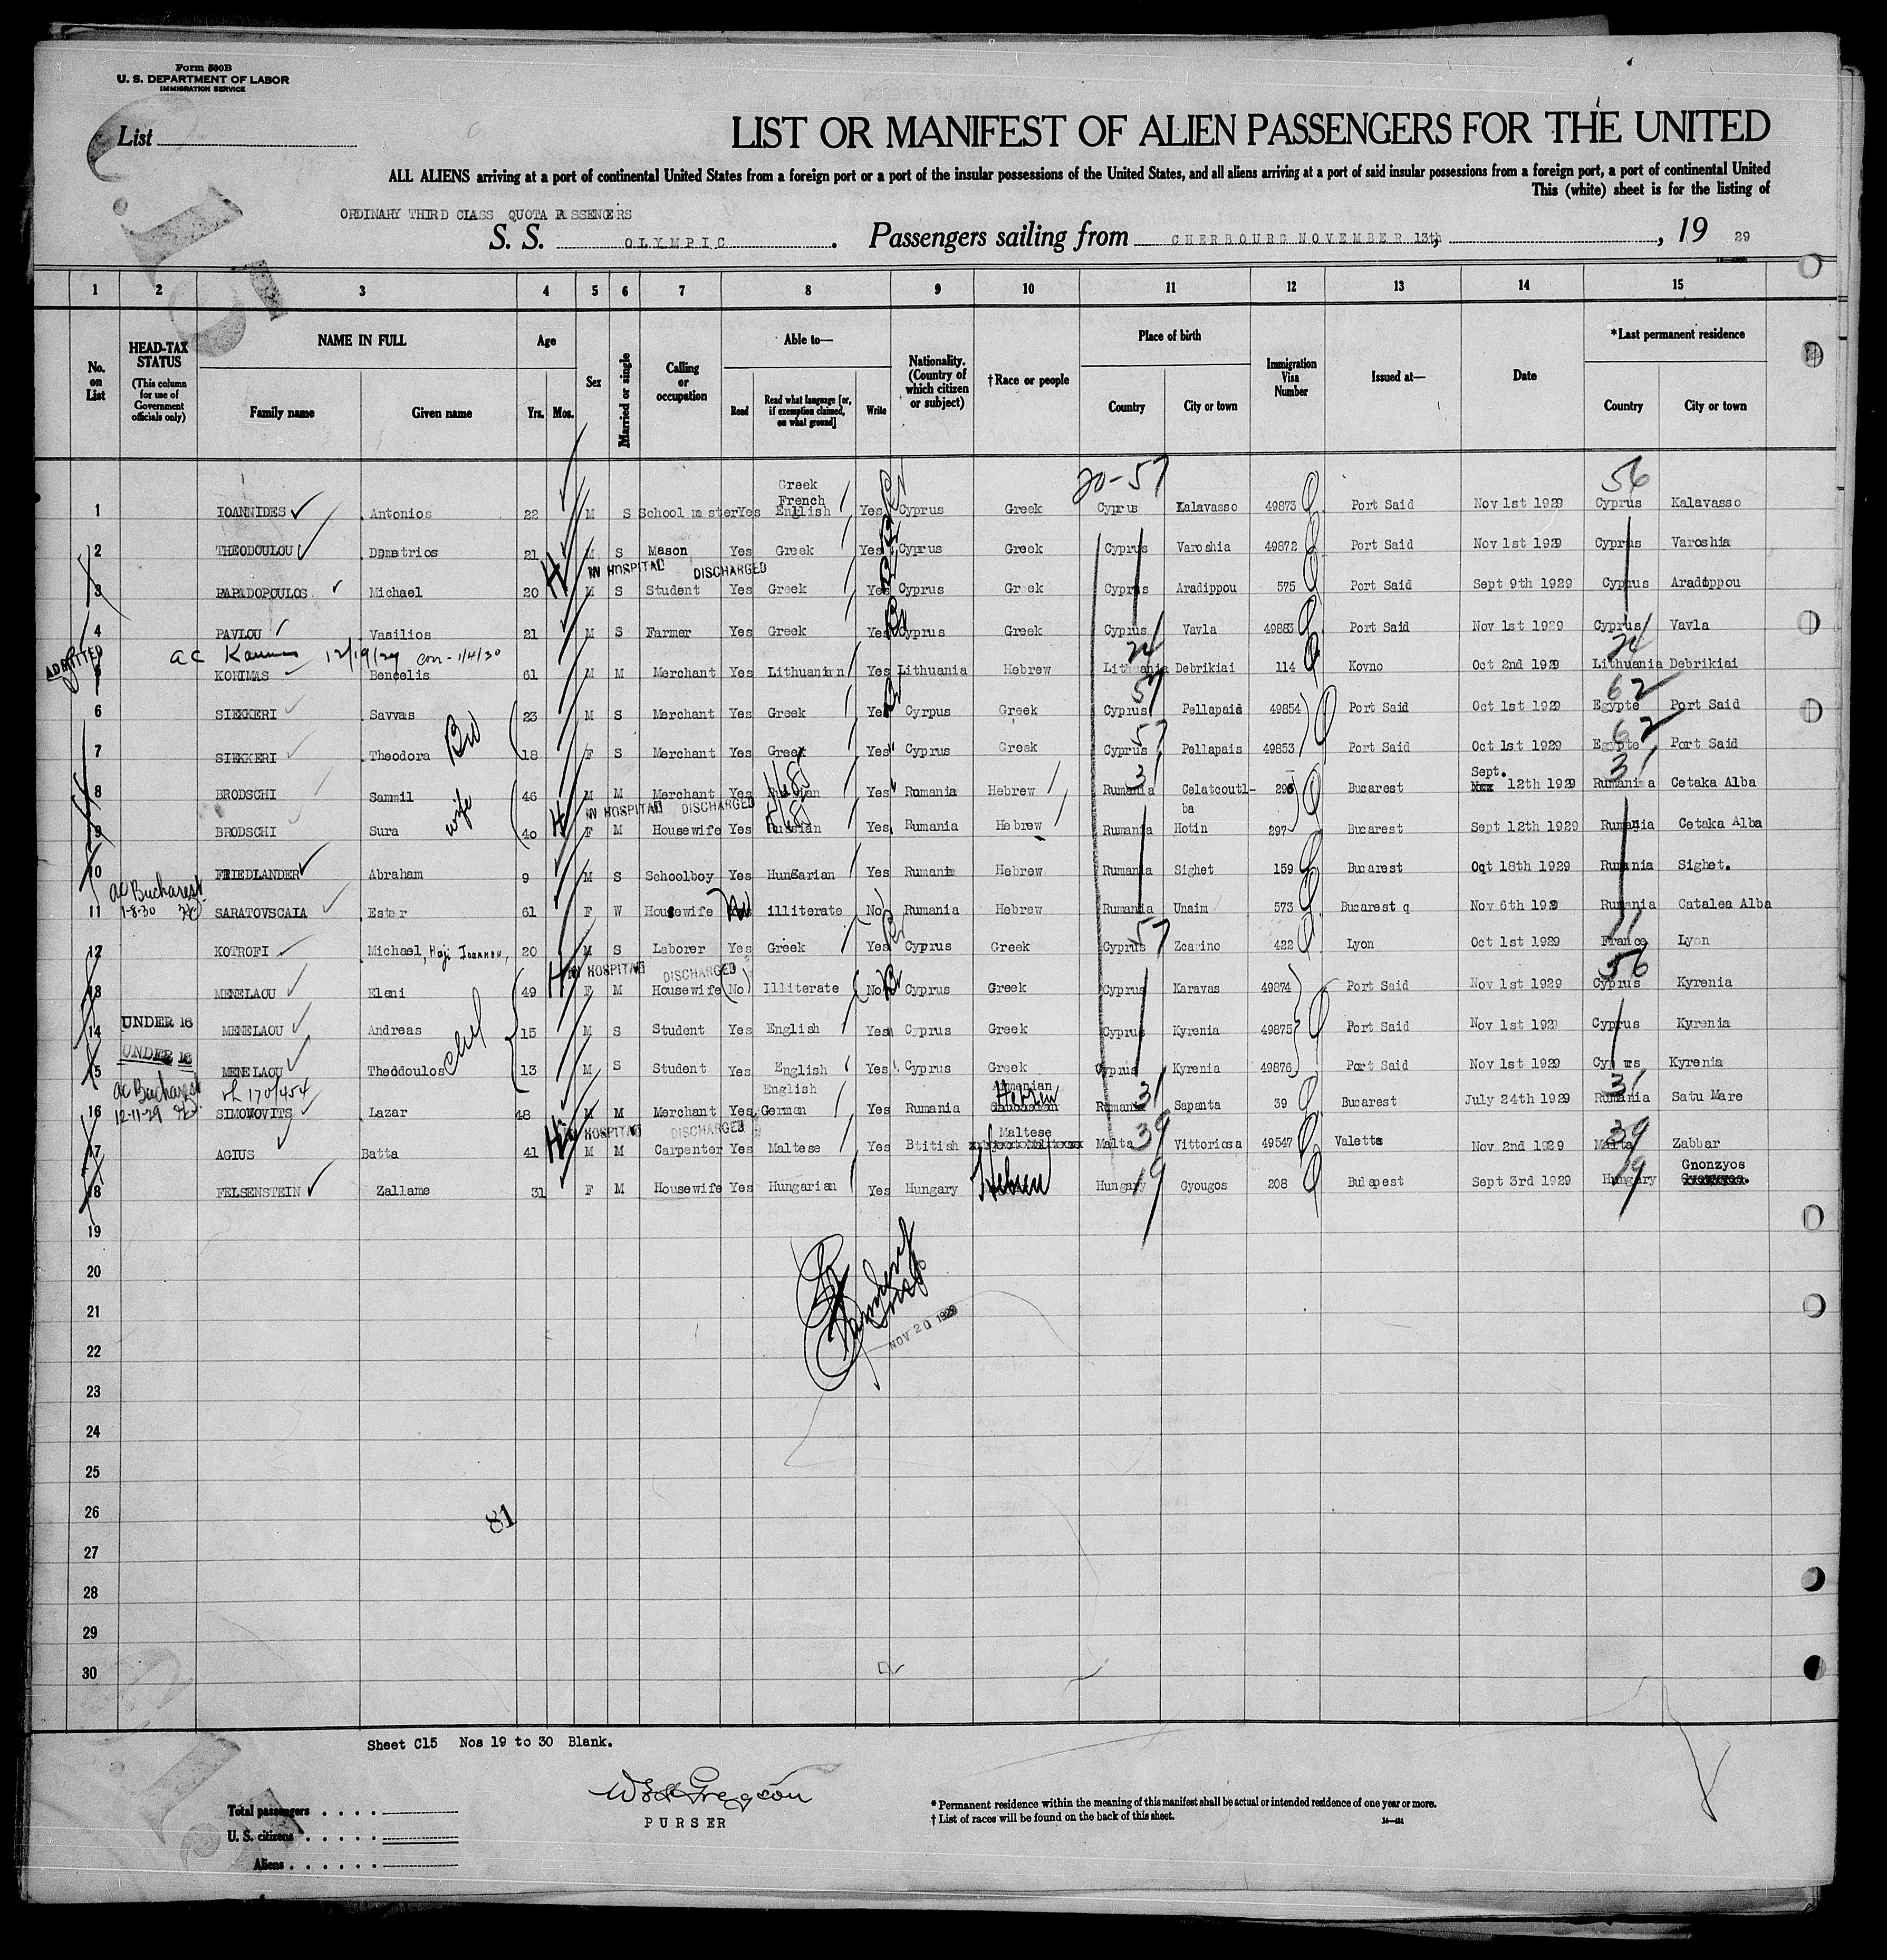 Form 500B
U. S. DEPARTMENT OF LABOR
IMMIGRATION SERVICE
List
LIST OR MANIFEST OF ALIEN PASSENGERS FOR THE UNITED
ALL ALIENS arriving at a port of continental United States from a foreign port or a port of the insular possessions of the United States, and all aliens arriving at a port of said insular possessions from a foreign port, a port of continental United
This (white) sheet is for the listing of
ORDINARY THIRD CLASS QUOTA PASSENGERS
S. S. OLYMPIC. Passengers sailing from CHERBOURG NOVEMBER 13th, , 19 29
1 2 3 4 5 6 7 8 9 10 11 12 13 14 15
No. on List
HEAD-TAX STATUS (This column for use of Government officials only)
NAME IN FULL Family name Given name
Age Yrs. Mos.
Sex
Married or single
Calling or occupation
Able to— Read Read what language [or, if exemption claimed, on what ground] Write
Nationality. (Country of which citizen or subject)
†Race or people
Place of birth Country City or town
Immigration Visa Number
Issued at—
Date
*Last permanent residence Country City or town
20-57 56
1 IOANNIDES Antonios 22 M S School master Yes Greek French English Yes Cyprus Greek Cyprus Kalavasso 49873 Port Said Nov 1st 1929 Cyprus Kalavasso
2 THEODOULOU Demetrios 21 M S Mason Yes Greek Yes Cyprus Greek Cyprus Varoshia 49872 Port Said Nov 1st 1929 Cyprus Varoshia
IN HOSPITAL DISCHARGED
3 PAPADOPOULOS Michael 20 M S Student Yes Greek Yes Cyprus Greek Cyprus Aradippou 575 Port Said Sept 9th 1929 Cyprus Aradippou
4 PAVLOU Vasilios 21 M S Farmer Yes Greek Yes Cyprus Greek Cyprus Vavla 49883 Port Said Nov 1st 1929 Cyprus Vavla
ADMITTED ac Kaunas 12/19/29 con-1/4/30 24 24
5 KORIMAS Bencelis 61 M M Merchant Yes Lithuanian Yes Lithuania Hebrew Lithuania Debrikiai 114 Kovno Oct 2nd 1929 Lithuania Debrikiai
57 62
6 SIEKKERI Savvas 23 M S Merchant Yes Greek Yes Cyrpus Greek Cyprus Pellapais 49854 Port Said Oct 1st 1929 Egypte Port Said
57 62
7 SIEKKERI Theodora 18 F S Merchant Yes Greek Yes Cyprus Greek Cyprus Pellapais 49853 Port Said Oct 1st 1929 Egypte Port Said
31 31
8 BRODSCHI Sammil 46 M M Merchant Yes Russian Yes Rumania Hebrew Rumania Celatcoutl-ba 296 Bucarest Sept. 12th 1929 Rumania Cetaka Alba
IN HOSPITAL DISCHARGED
9 BRODSCHI Sura wife 40 F M Housewife Yes Russian Yes Rumania Hebrew Rumania Hotin 297 Bucarest Sept 12th 1929 Rumania Cetaka Alba
10 FRIEDLANDER Abraham 9 M S Schoolboy Yes Hungarian Yes Rumania Hebrew Rumania Sighet 159 Bucarest Oct 18th 1929 Rumania Sighet.
ac Bucharest 1-8-30
11 SARATOVSCAIA Ester 61 F W Housewife No illiterate No Rumania Hebrew Rumania Unaim 573 Bucarest Nov 6th 1929 Rumania Catalea Alba
57 11
12 KOTROFI Michael, Haji Ioannou, 20 M S Laborer Yes Greek Yes Cyprus Greek Cyprus Zcarino 422 Lyon Oct 1st 1929 France Lyon
IN HOSPITAL DISCHARGED 56
13 MENELAOU Eleni 49 F M Housewife (No) Illiterate No Cyprus Greek Cyprus Karavas 49874 Port Said Nov 1st 1929 Cyprus Kyrenia
UNDER 16
14 MENELAOU Andreas 15 M S Student Yes English Yes Cyprus Greek Cyprus Kyrenia 49875 Port Said Nov 1st 1929 Cyprus Kyrenia
UNDER 16
15 MENELAOU Theodoulos 13 M S Student Yes English Yes Cyprus Greek Cyprus Kyrenia 49876 Port Said Nov 1st 1929 Cyprus Kyrenia
ac Bucharest 12-11-29 170/454 31 31
16 SIMOVOVITS Lazar 48 M M Merchant Yes English German Yes Rumania Armenian Hebrew Rumania Sapanta 39 Bucarest July 24th 1929 Rumania Satu Mare
IN HOSPITAL DISCHARGED 39 39
17 AGIUS Batta 41 M M Carpenter Yes Maltese Yes Btitish Maltese Malta Vittoriosa 49547 Valetta Nov 2nd 1929 Malta Zabbar
19 19
18 FELSENSTEIN Zallame 31 F M Housewife Yes Hungarian Yes Hungary Hebrew Hungary Gyougos 208 Budapest Sept 3rd 1929 Hungary Gnonzyos
19
20
21
NOV 20 1929
22
23
24
25
26
81
27
28
29
30
Sheet C15 Nos 19 to 30 Blank.
PURSER
Total passengers . . . .
U. S. citizens . . . . .
Aliens . . . . . .
* Permanent residence within the meaning of this manifest shall be actual or intended residence of one year or more.
† List of races will be found on the back of this sheet.